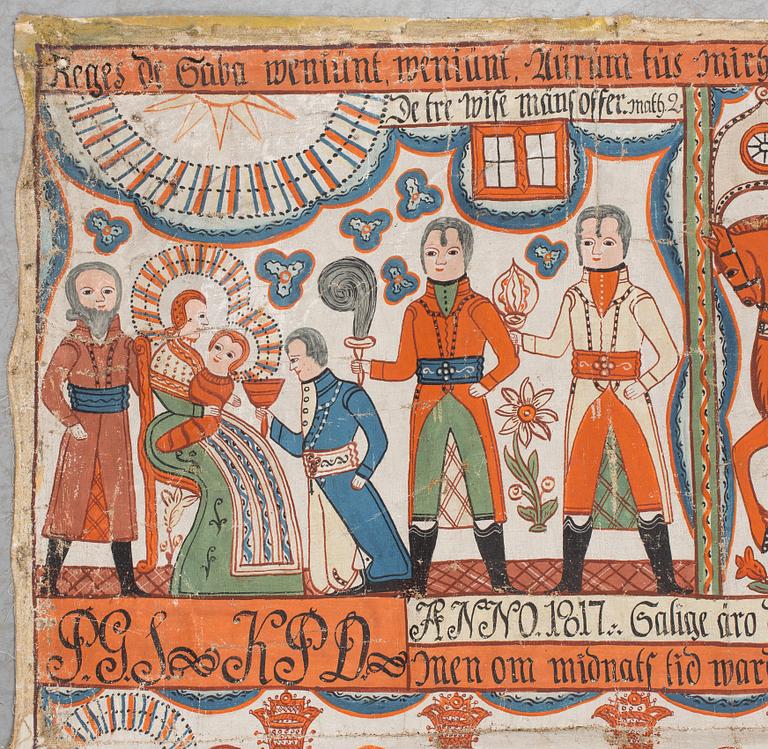 Reges de Saba weniunt, weniunt, Aurum tus mirh
De tre wise mäns offer. math. 2.
P. G. S. K P D.
ANNO. 1817. Salige äro
men om midnats tid ward